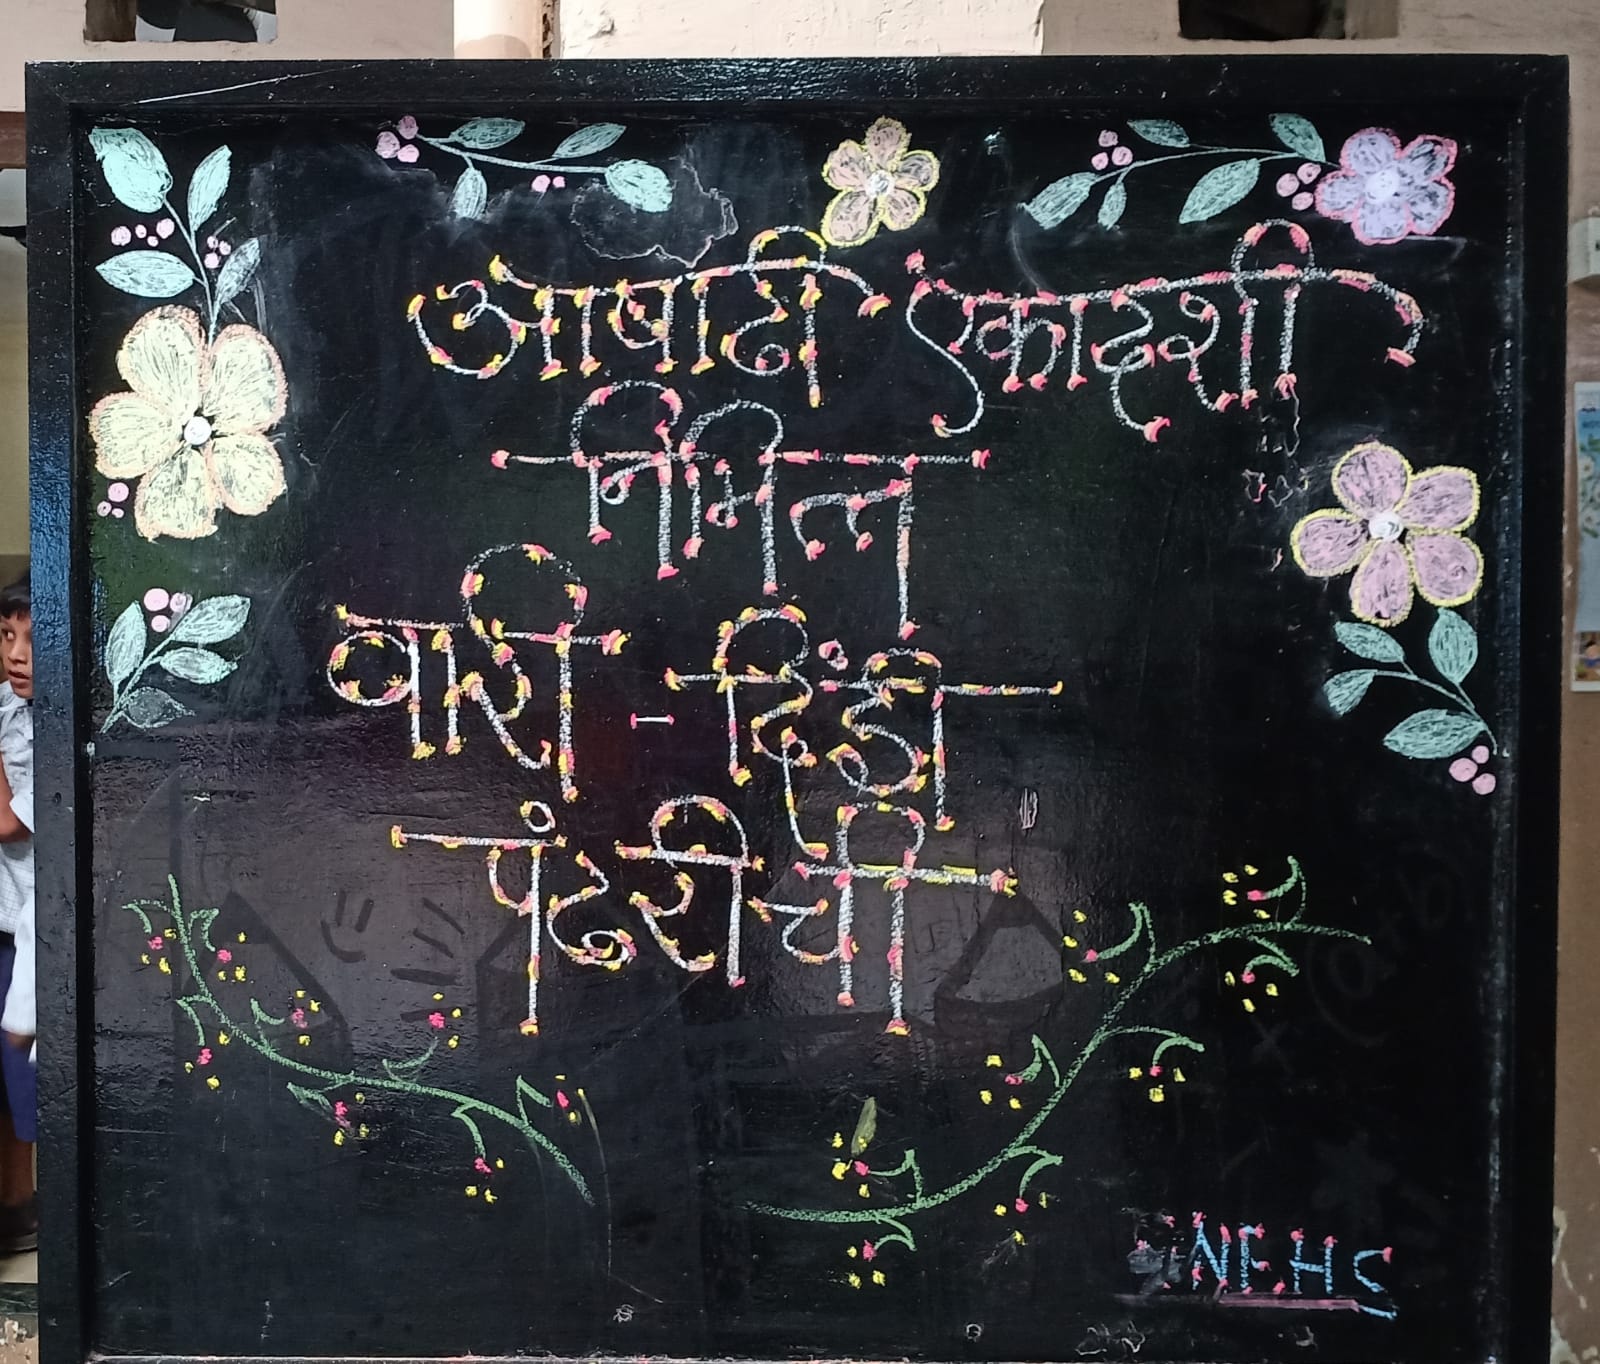 आषाढी एकादशी
निमित्त
वारी - दिंडी
पंढरीची
NEHS